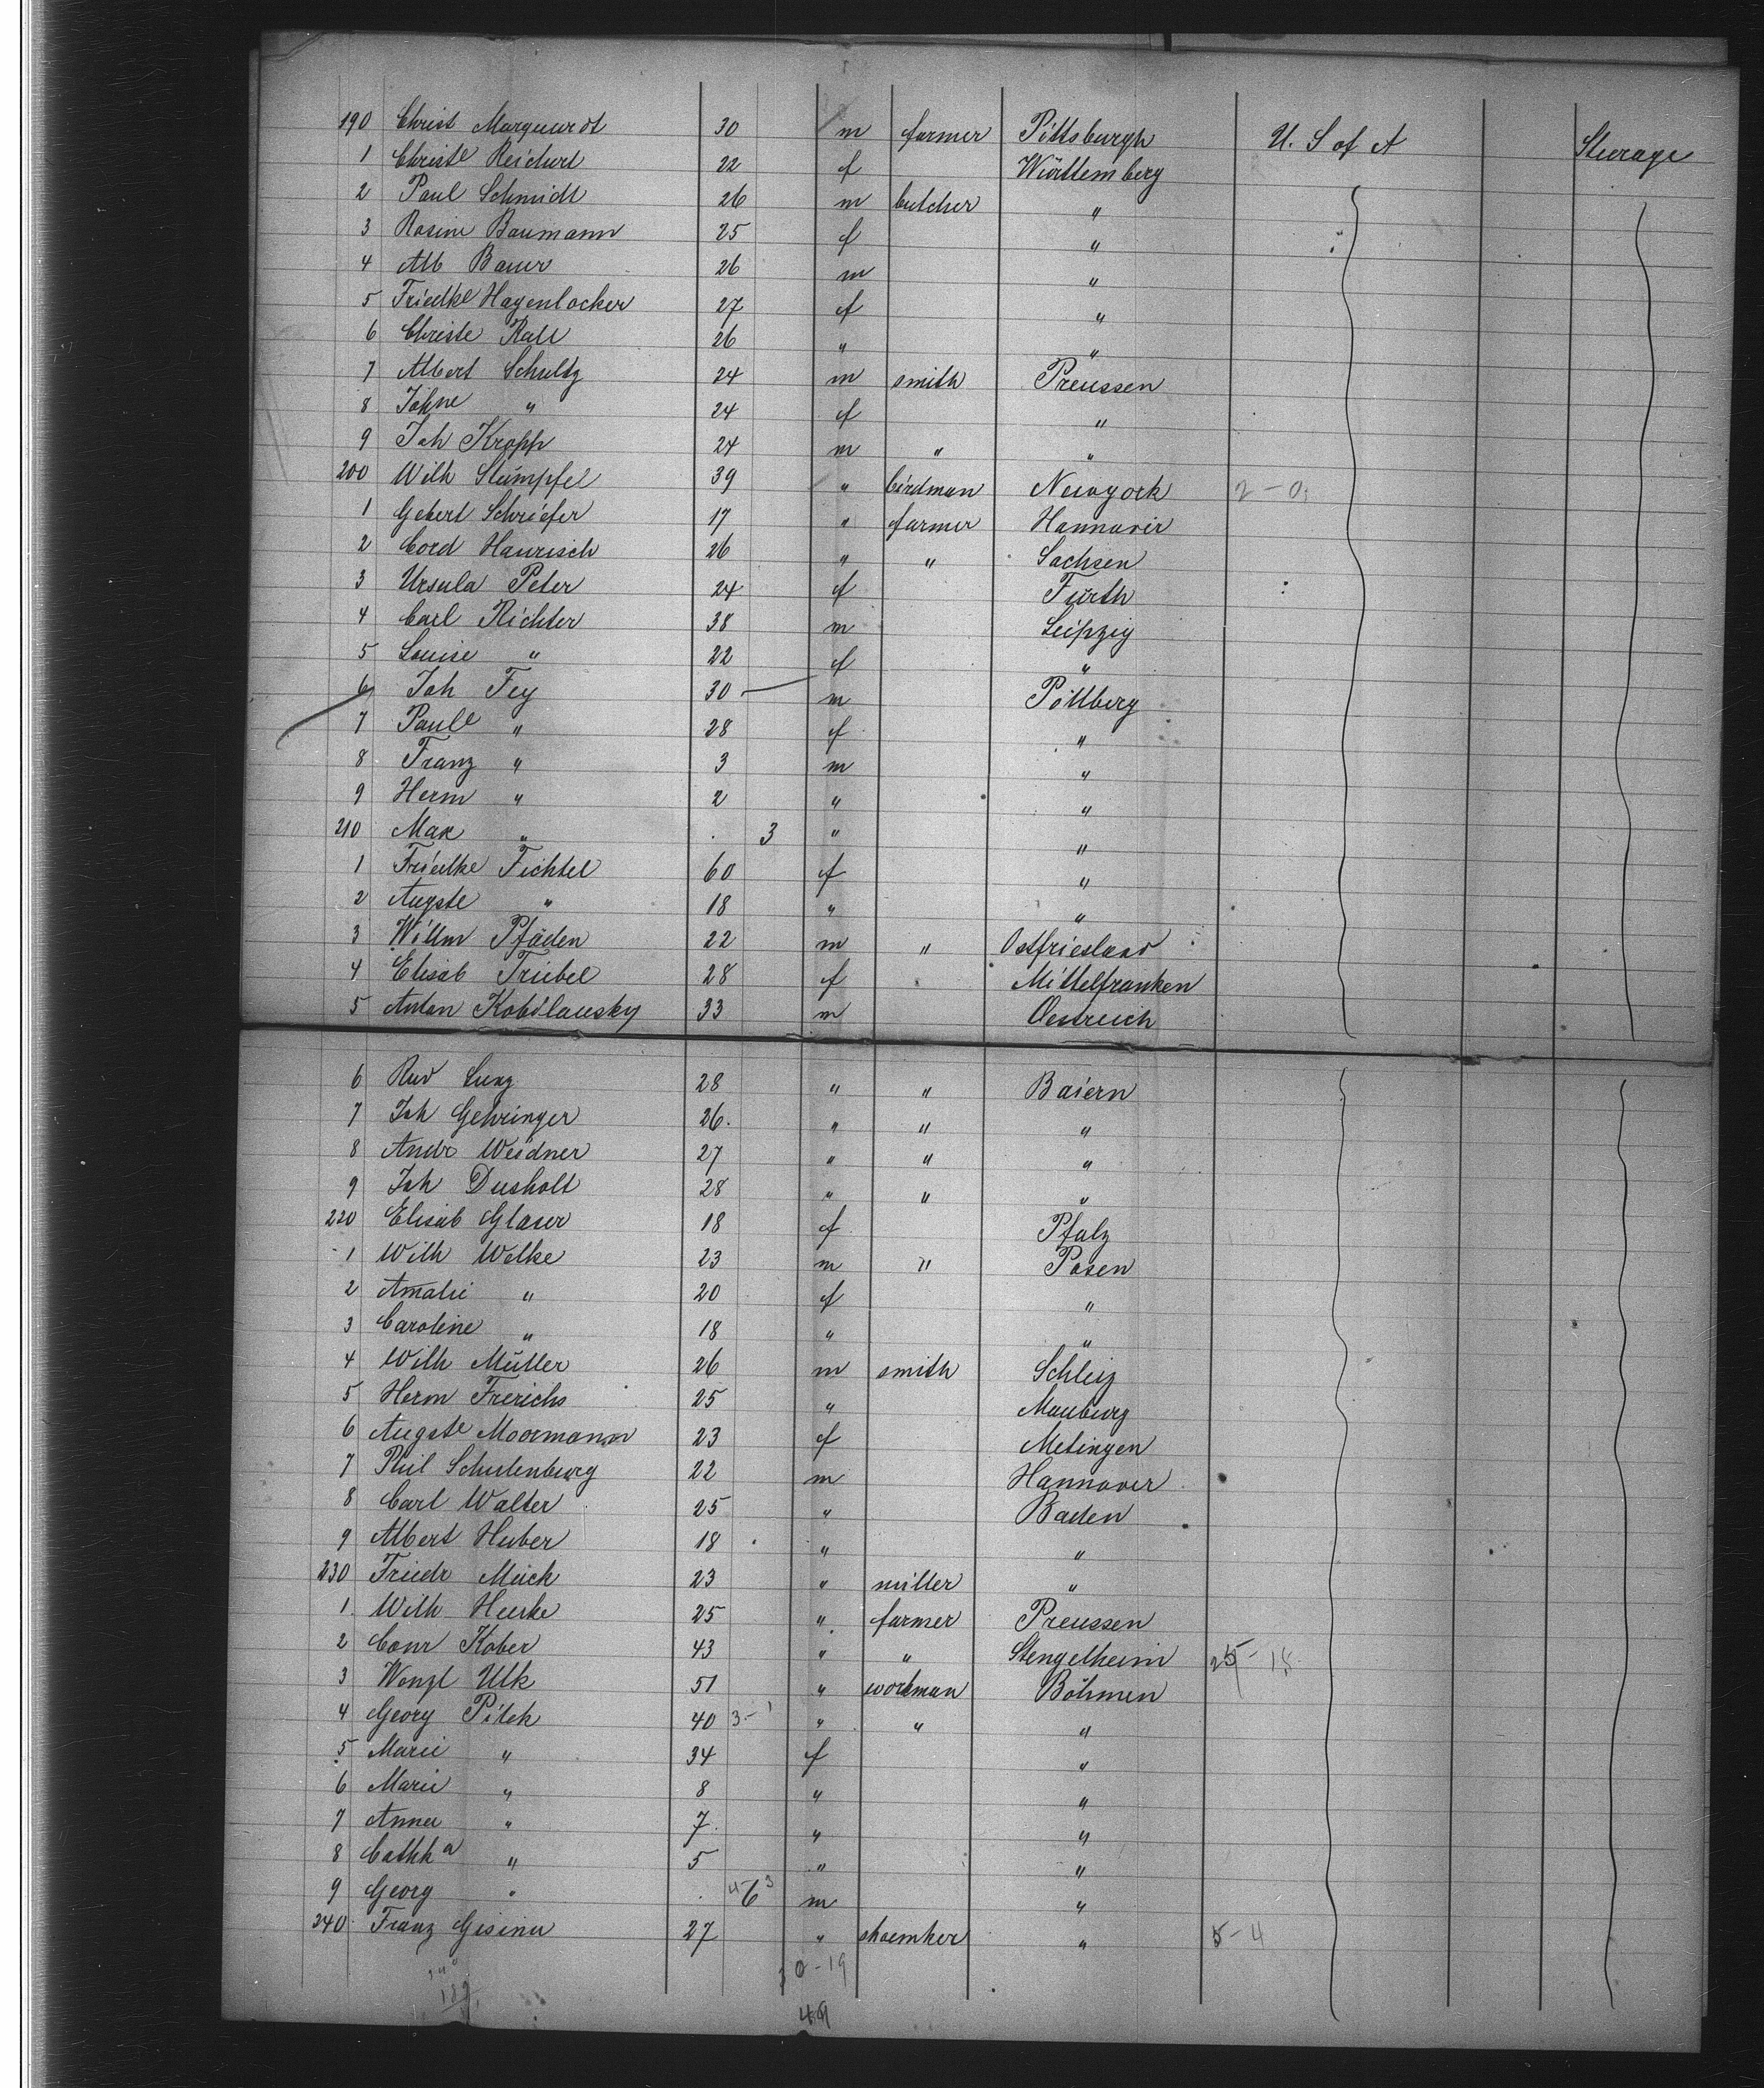 190 Christ Marquardt 30 m farmer Pittsburgh U. S of A Steerage
1 Christe Reichert 22 f Württemberg
2 Paul Schmidt 26 m butcher "
3 Rosine Baumann 25 f "
4 Alb Bauer 26 m "
5 Friedke Hagenlocker 27 f "
6 Christe Rall 26 " "
7 Albert Schultz 24 m smith Preussen
8 Johne " 24 f "
9 Joh Kropp 24 m " "
200 Wilh Stümpfel 39 " birdman Newyork 2-0
1 Gebert Schriefer 17 " farmer Hannover
2 Cord Haurisch 26 " " Sachsen
3 Ursula Peter 24 f Fürth
4 Carl Richter 38 m Leipzig
5 Louise " 22 f "
6 Joh Fey 30 m Pöllberg
7 Paule " 28 f "
8 Franz " 3 m "
9 Herm " 2 " "
210 Max " 3 " "
1 Friedke Fichtel 60 f "
2 Augste " 18 " "
3 Willm Pfäden 22 m " Ostfriesland
4 Elisab Triebel 28 f Mittelfranken
5 Anton Kobilausky 33 m Oestreich
6 Rud Lung 28 " " Baiern
7 Joh Gehringer 26 " " "
8 Andr Weidner 27 " " "
9 Joh Dusholt 28 " " "
220 Elisab Glaser 18 f Pfalz
1 Wilh Welke 23 m " Posen
2 Amalie " 20 f "
3 Caroline " 18 " "
4 Wilh Müller 26 m smith Schleiz
5 Herm Frerichs 25 " Mauburg
6 Augste Moormann 23 f Metingen
7 Phil Schulenburg 22 m Hannover
8 Carl Walter 25 " Baden
9 Albert Huber 18 " "
230 Friedr Mück 23 " miller "
1 Wilh Heuke 25 " farmer Preussen
2 Conr Kober 43 " " Stengelheim 25-18
3 Wenzl Ulk 51 " workman Böhmen
4 Georg Pilek 40 3-1 " " "
5 Marie " 34 f "
6 Marie " 8 " "
7 Anna " 7 " "
8 Cathha " 5 " "
9 Georg " 6 m "
240 Franz Gisinu 27 " shoemker " 5-4
189 30-19
49